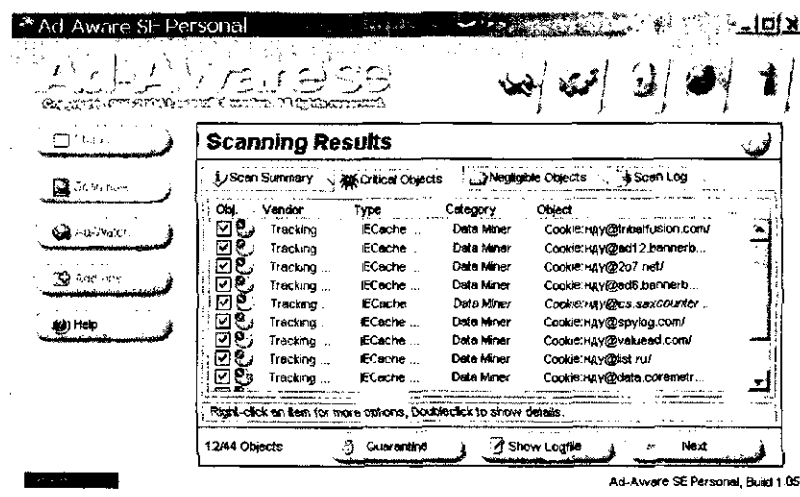 Ad-Aware SE Personal
Ad-Aware SE
Status
Scan now
Ad-Watch
Add-ons
Help
Scanning Results
Scan Summary Critical Objects Negligible Objects Scan Log
Obj. Vendor Type Category Object ...
Tracking IECache ... Data Miner Cookie:нду@tribalfusion.com/
Tracking IECache . Data Miner Cookie:нду@ad12.bannerb...
Tracking ... IECache ... Data Miner Cookie:нду@2o7.net/
Tracking ... IECache ... Data Miner Cookie:нду@ad6.bannerb...
Tracking . IECache Data Miner Cookie:нду@cs.sexcounter...
Tracking ... IECache ... Data Miner Cookie:нду@spylog.com/
Tracking ... IECache ... Data Miner Cookie:нду@valuead.com/
Tracking ... IECache ... Data Miner Cookie:нду@list.ru/
Tracking ... IECache ... Data Miner Cookie:нду@data.coremetr...
Right-click an item for more options, Doubleclick to show details.
12/44 Objects Quarantine Show Logfile Next
Ad-Aware SE Personal, Build 1.05